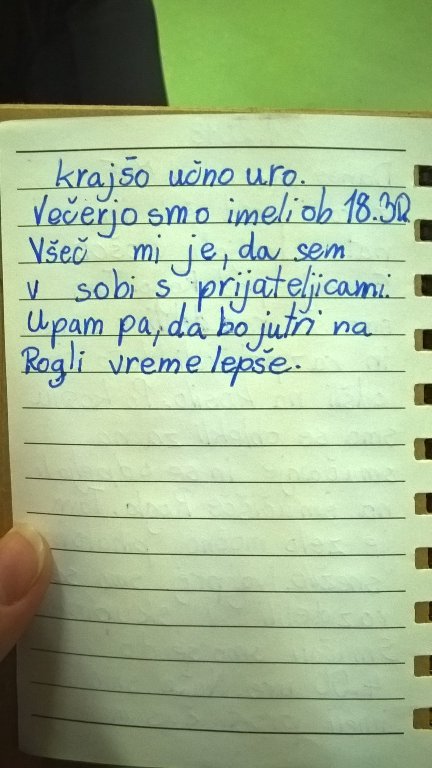 krajšo učno uro.
Večerjo smo imeli ob 18.30.
Všeč mi je, da sem
v sobi s prijateljicami.
Upam pa, da bo jutri na
Rogli vreme lepše.